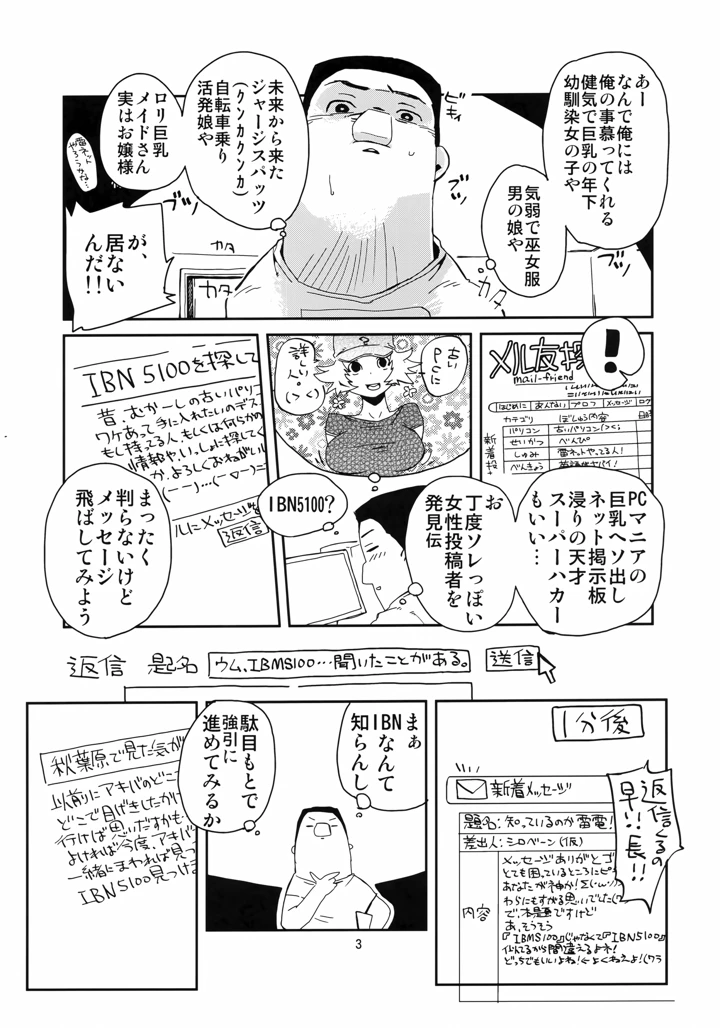 あー
なんで俺には
俺の事慕ってくれる
健気で巨乳の年下
幼馴染女の子や
気弱で巫女服
男の娘や
未来から来た
ジャージスパッツ
(クンカクンカ)
自転車乗り
活発娘や
ロリ巨乳
メイドさん
実はお嬢様
雷ネット
やろうかな…
が、
居ない
んだ!!
カタ
カタ
!
メル友探
mail-friend
はじめに
あんない
プロフ
メッセージ
ログ
カテゴリ
ぼしゅう内容
日時
新着投
パソコン
古いパソコン
せいかつ
べんぴ
しゅみ
雷ネットやってる人!
べんきょう
英語がヤバイ!
PCマニアの
巨乳ヘソ出し
ネット掲示板
浸りの天才
スーパーハカー
もいい…
古い
PCに
詳しい
人?
お
丁度ソレっぽい
女性投稿者を
発見伝
IBN5100?
IBN5100を探して
昔…むかーしの古いパソコ
ワケあって手に入れたいのデス
もし持ってる人、もしくは何らかの
情報やいっしょに探してく
か、よろしくおねがい
(ーー)…(ー▽ー)=
ルにメッセージを
返信
まったく
判らないけど
メッセージ
飛ばしてみよう
返信 題名 ウム、IBM5100…聞いたことがある。 送信
1分後
返信くるの
早!!長!!
新着メッセージ
題名:知っているのか雷電!
差出人:シロベーン(仮)
内容
メッセージありがとゴ
とても困っているところにピ
あなたが神か!Σ(・ω・ノ)
わらにもすがる思いでした(ワ
で、本題ですけど
あ、そうそう
『IBM5100』じゃなくて『IBN5100』
似てるから間違えるよネ!
どっちでもいいよね!←よくねえよ!(ワラ
まぁ
IBNなんて
知らんし
駄目もとで
強引に
進めてみるか
秋葉原で見た気が
以前にアキバのどこ
どこで目げきしたかけ
行けば思いだすかも
よければ今度、アキバ
一緒にまわれば見つ
IBN5100見つけ
3